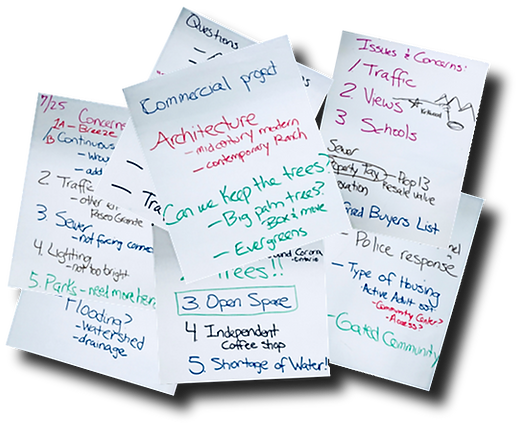 Questions
Commercial project
Architecture
- midcentury modern
- contemporary Ranch
Can we Keep the trees?
- Big palm trees?
Box & move
- Evergreens
Issues & Concerns:
1 Traffic
2. Views
3 Schools
Sewer
Prop 13
Resale value
Buyers List
7/25
Concerns
1A - Breeze
1B Continuous
- add
2. Traffic
- other
Paseo Grande
3. Sewer
- not facing
4. Lighting
- not too bright
5. Parks - need more here
Flooding?
- watershed
- drainage
Trees!!
3. Open Space
4 Independent
Coffee shop
5. Shortage of Water!!
- Police response
- Type of Housing
- Active Adult 55+
- Community Center?
- Access?
- Gated Community